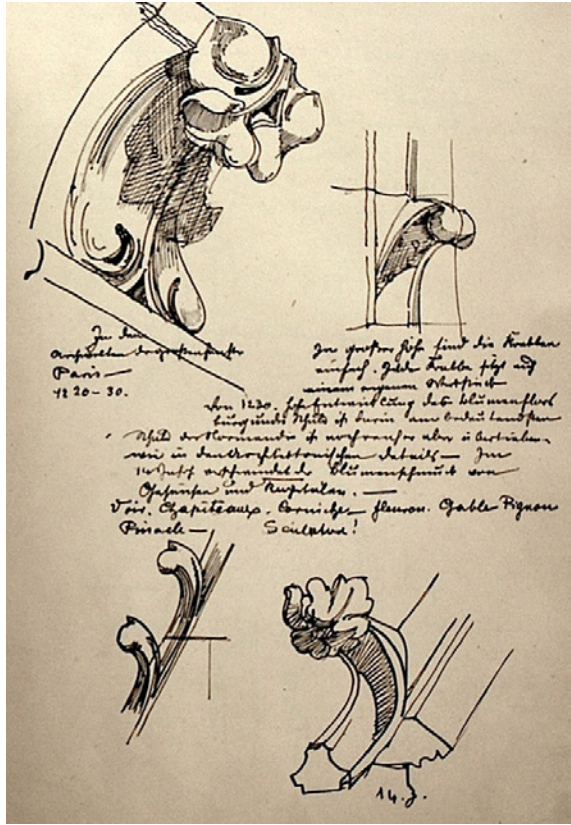 In den
Paris —
1220-30.
In großer Höhe sind die Krabben
einfach. Jede Krabbe sitzt auf
einem eigenen Werkstück
Von 1230. hohe Entwicklung des Blumenflors
burgunds Schule ist darin am bedeutendsten
Schule der Normandie ist noch reicher aber übertrieben
wie in den architektonischen Details — Im
14 Jahrh verschwindet der Blumenschmuck von
Gesimsen und Kapitälen. —
Voir. Chapiteaux. Corniches fleuron. Gable Pignon
Pinacle — Sculptur!
14. J.